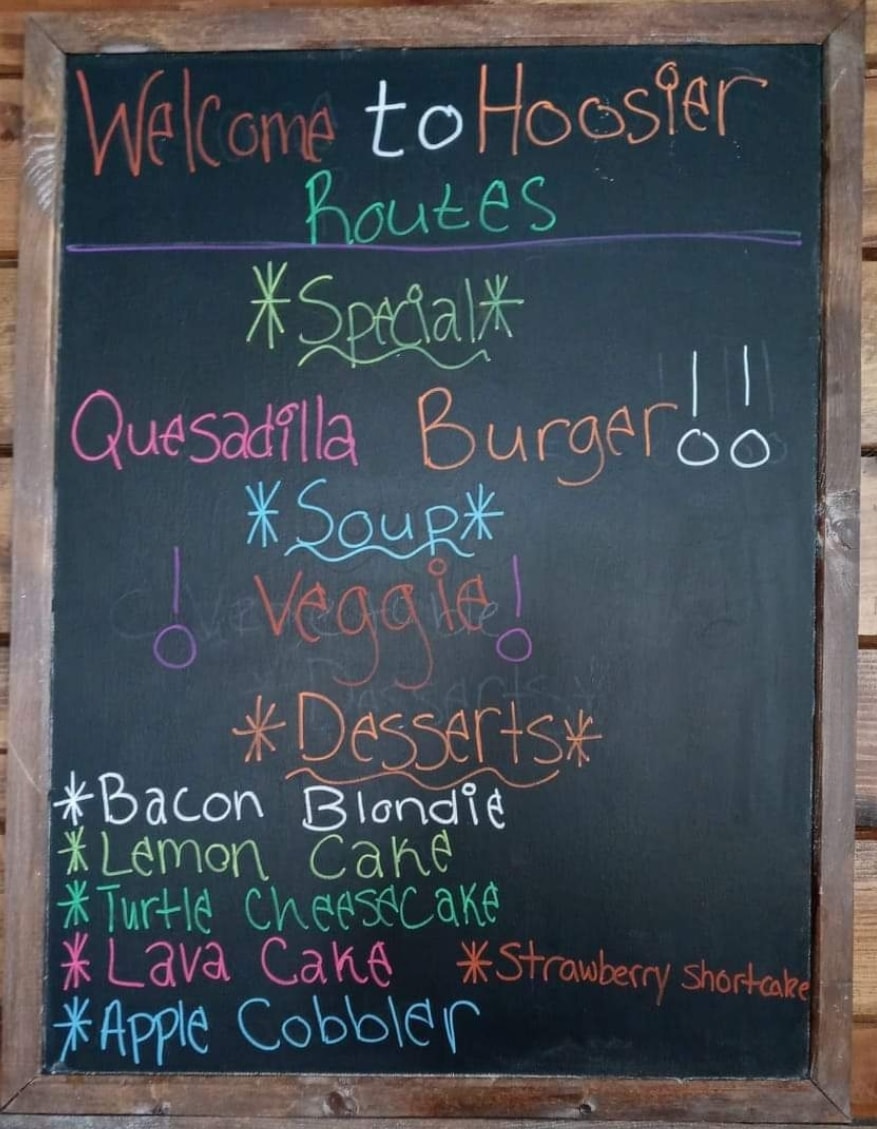 Welcome to Hoosier
Routes
*Special*
Quesadilla Burger!!
*Soup*
! Veggie !
*Desserts*
*Bacon Blondie
*Lemon Cake
*Turtle Cheesecake
*Lava Cake *Strawberry Shortcake
*Apple Cobbler